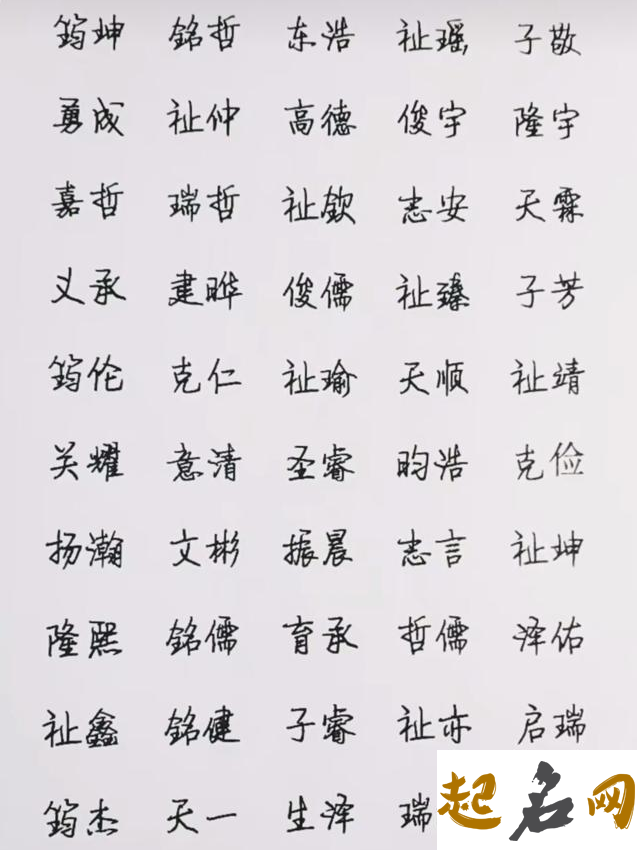 筠坤 铭哲 东浩 祉瑶 子敬
勇成 祉仲 高德 俊宇 隆宇
嘉哲 瑞哲 祉钦 志安 天霖
义承 建晔 俊儒 祉臻 子芳
筠伦 克仁 祉瑜 天顺 祉靖
关耀 意清 圣睿 昀浩 克俭
扬瀚 文彬 振晨 志言 祉坤
隆熙 铭儒 育承 哲儒 泽佑
祉鑫 铭健 子睿 祉亦 启瑞
筠杰 天一 生泽 瑞
起名网